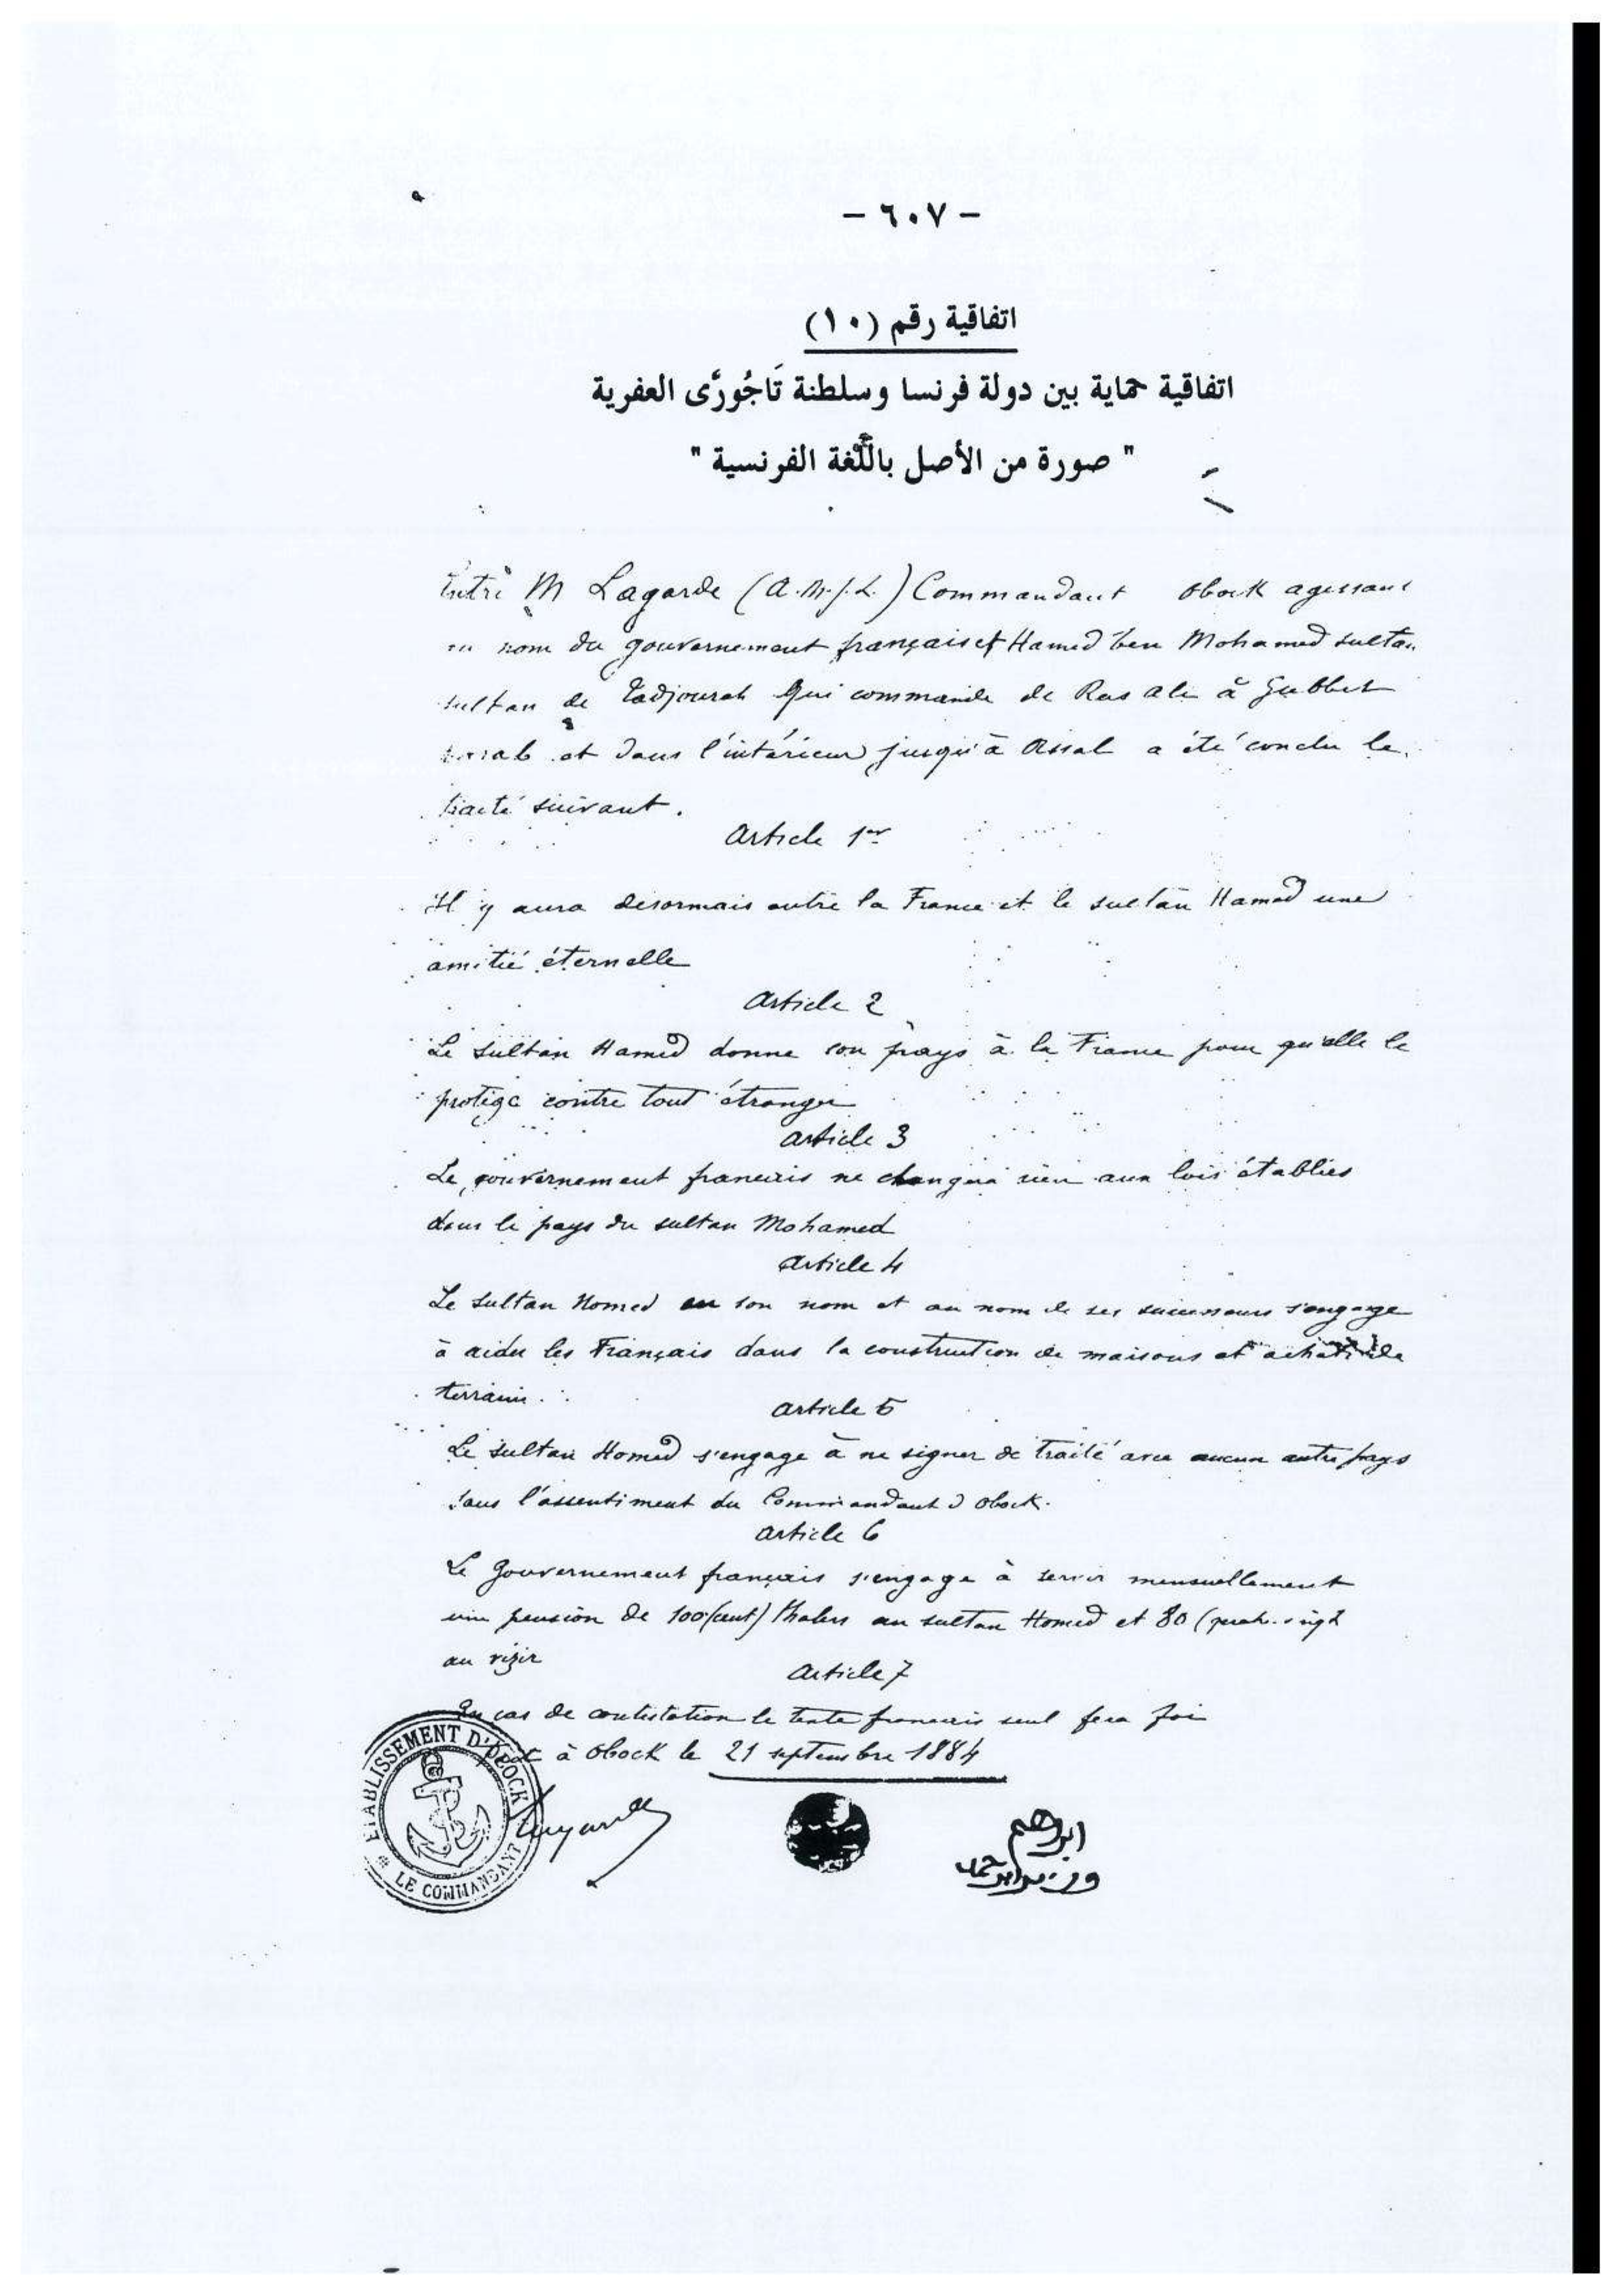 - ٦٠٧ -
اتفاقية رقم (١٠)
اتفاقية حماية بين دولة فرنسا وسلطنة تَاجُورَّى العفرية
" صورة من الأصل باللُّغة الفرنسية "
Entre M Lagarde (A.M.J.L.) Commandant Obock agissant
au nom du gouvernement français et Hamed ben Mohamed sultan
sultan de Tadjourah qui commande de Ras Ali à Gubbet
et dans l'intérieur jusqu'à Assal a été conclu le
traité suivant.
Article 1er
Il y aura désormais entre la France et le sultan Hamed une
amitié éternelle
Article 2
Le sultan Hamed donne son pays à la France pour qu'elle le
protège contre tout étranger
Article 3
Le gouvernement français ne changera rien aux lois établies
dans le pays du sultan Mohamed
Article 4
Le sultan Homed en son nom et au nom de ses successeurs s'engage
à aider les Français dans la construction de maisons et achat de
terrains.
Article 5
Le sultan Homed s'engage à ne signer de traité avec aucun autre pays
sans l'assentiment du Commandant d'Obock.
Article 6
Le Gouvernement français s'engage à servir mensuellement
une pension de 100 (cent) thalers au sultan Homed et 80 (
au vizir
Article 7
En cas de contestation le texte français seul fera foi
Fait à Obock le 21 septembre 1884
ETABLISSEMENT D'OBOCK
* LE COMMANDANT
Lagarde
ابراهيم